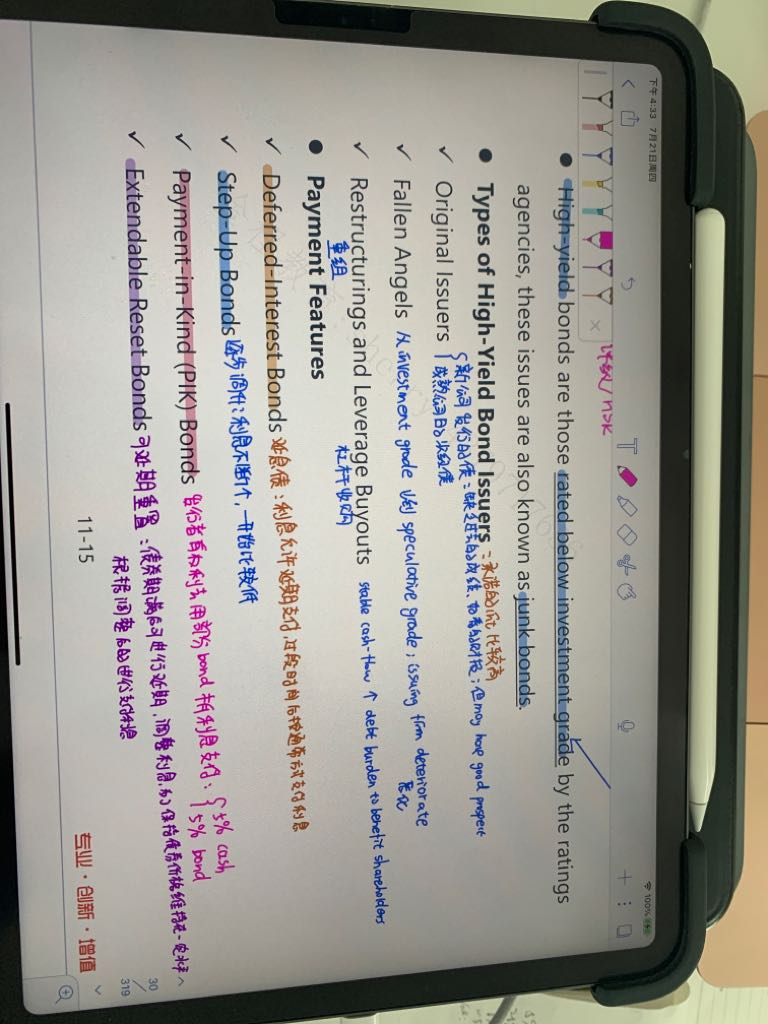 下午4:33 7月21日周四
100%
评级/risk
• High-yield bonds are those rated below investment grade by the ratings
agencies, these issues are also known as junk bonds.
• Types of High-Yield Bond Issuers：承担的risk比较高
✓ Original Issuers
新公司发行的债：缺乏过去的成绩，but may have good prospect
成熟公司的垃圾债
✓ Fallen Angels 从investment grade 降到 speculative grade；issuing firm deteriorate
恶化
✓ Restructurings and Leverage Buyouts stable cash-flow ↑ debt burden to benefit shareholders
重组 杠杆收购
• Payment Features
✓ Deferred-Interest Bonds 延息债：利息允许延期支付，这段时间后按通常方式支付利息
✓ Step-Up Bonds 逐步调升：利息不断↑，一开始比较低
✓ Payment-in-Kind (PIK) Bonds 发行者有权利去用部分bond抵利息支付：{5% cash
5% bond
✓ Extendable Reset Bonds 可延期重置：债券期满后可进行延期，调整利息，保持债券价格维持在一定水平
根据调整后的进行支付利息
11-15
专业·创新·增值
30
/
319